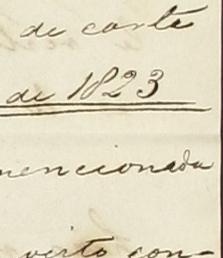 de corte
de 1823
mencionada
visto con-